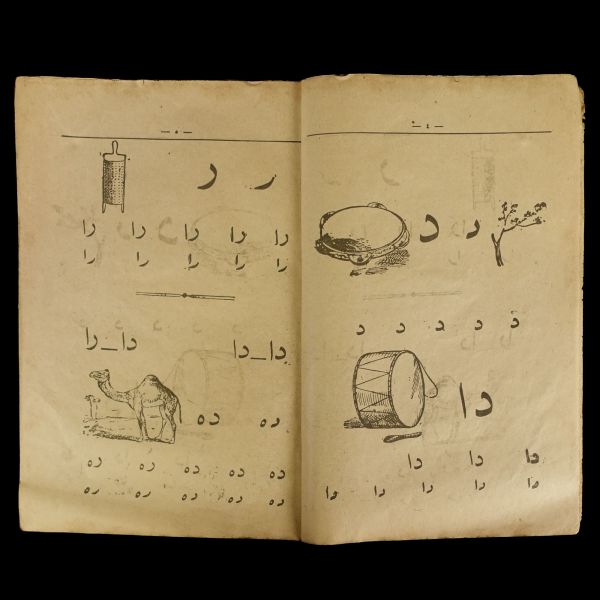 — ٤ —
د د
د د د د د
دا
دا دا دا
دا دا دا دا دا
— ٥ —
ر ر
را را را را را
را را را را را
دا_دا دا_را
ده ده
ده ده ده ده ده
ده ده ده ده ده